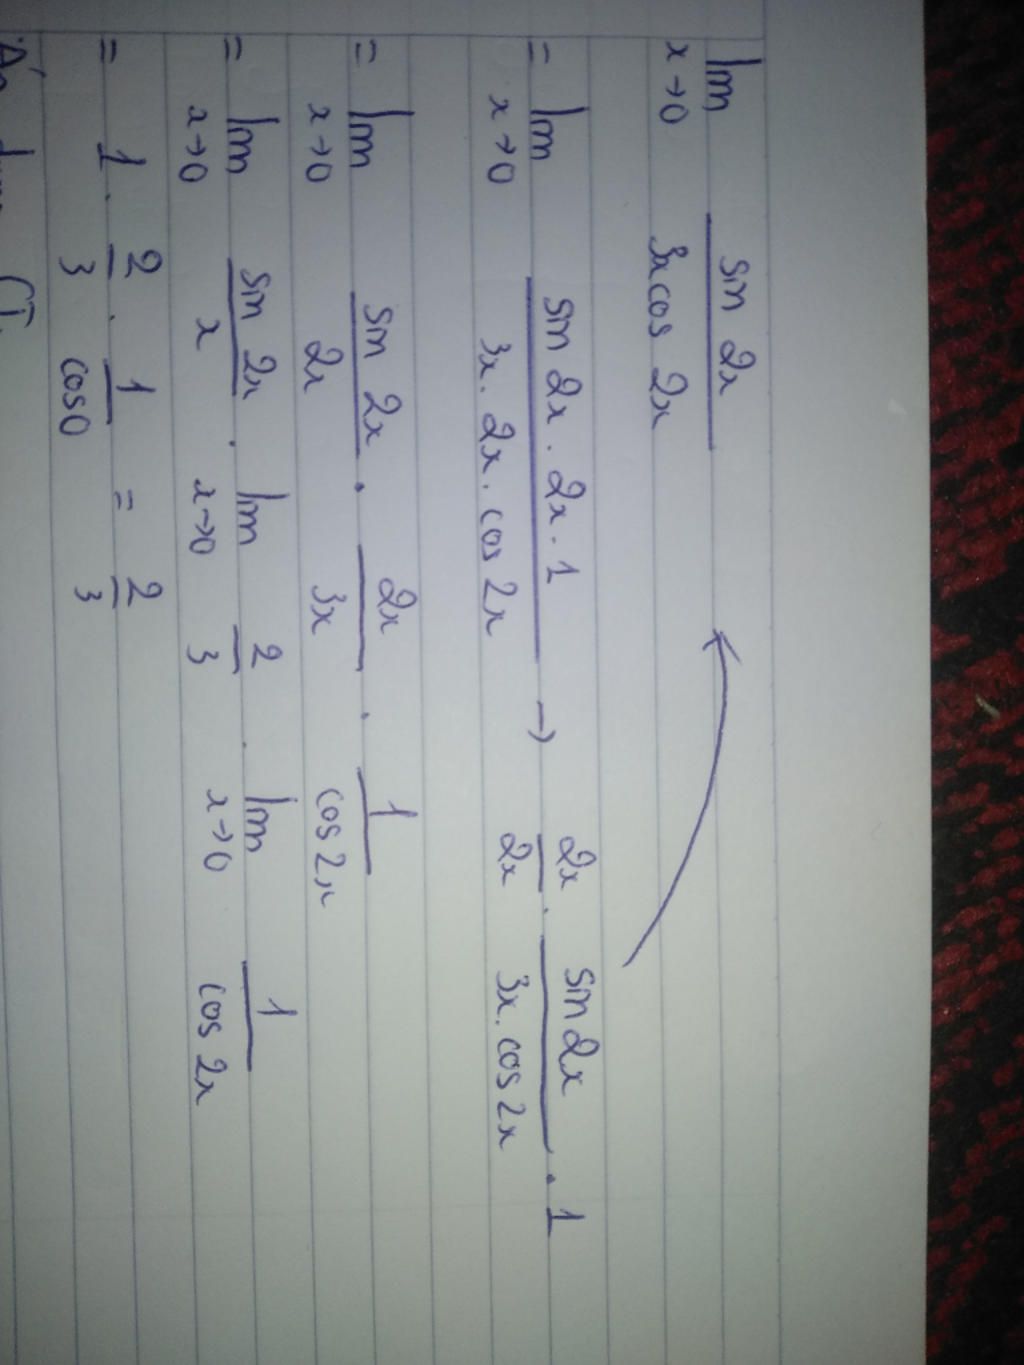 lim x→0 sin 2x / 3x cos 2x
= lim x→0 sin 2x . 2x . 1 / 3x . 2x . cos 2x → 2x / 2x . sin 2x / 3x . cos 2x . 1
= lim x→0 sin 2x / 2x . 2x / 3x . 1 / cos 2x
= lim x→0 sin 2x / x . lim x→0 2 / 3 . lim x→0 1 / cos 2x
= 1 . 2 / 3 . 1 / cos 0 = 2 / 3
Áp dụng CT